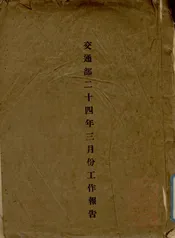 交通部二十四年三月份工作報告